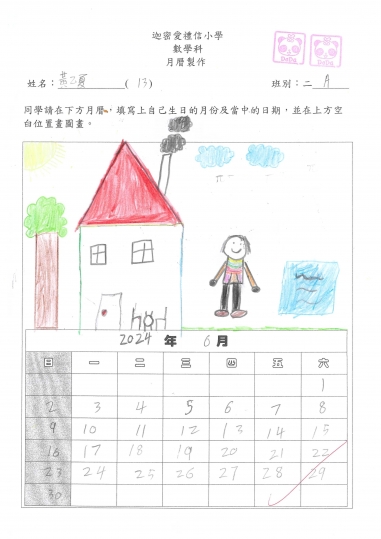 迦密愛禮信小學
數學科
月曆製作
姓名：( 13 ) 班別：二 A
同學請在下方月曆，填寫上自己生日的月份及當中的日期，並在上方空
白位置畫圖畫。
2024 年 6 月
日 一 二 三 四 五 六
1
2 3 4 5 6 7 8
9 10 11 12 13 14 15
16 17 18 19 20 21 22
23 24 25 26 27 28 29
30